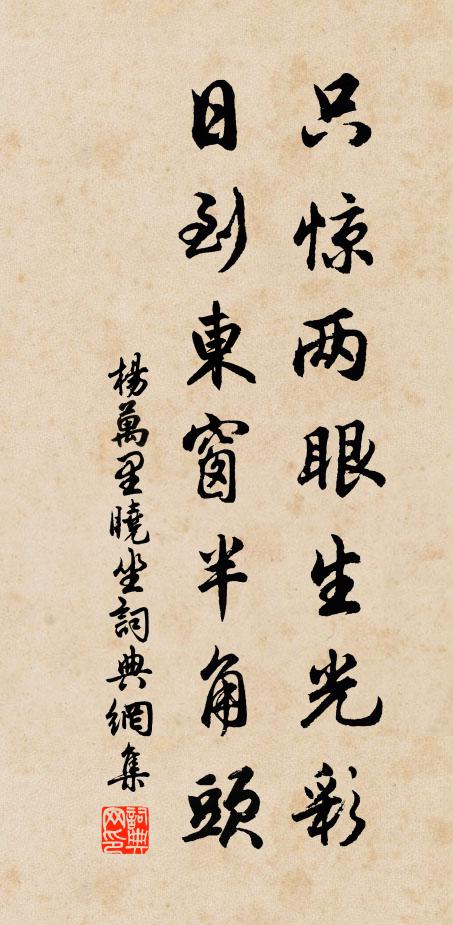 只惊两眼生光彩
日到東窗半角頭
楊萬里曉坐詞典網集
詞典
网印